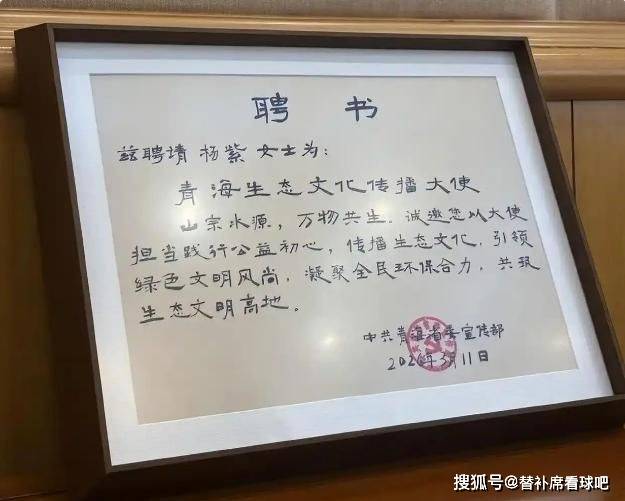 聘 书
兹聘请 杨紫 女士为：
青海生态文化传播 大使
山宗水源，万物共生。诚邀您以大使
担当践行公益初心，传播生态文化，引领
绿色文明风尚，凝聚全民环保合力，共
生态文明高地。
中共青海省委宣传部
2026年3月11日
搜狐号@替补席看球吧